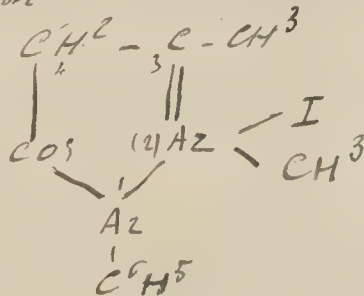 CH² - C - CH³
4 3
CO5 (2) Az I
CH³
1
Az
C⁶H⁵